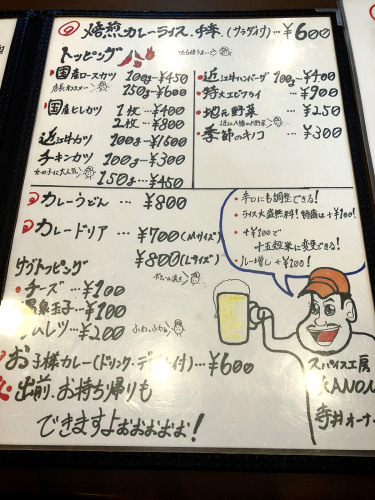 焙煎カレーライス.辛 (サラダ付) … ¥600
トッピング
国産ロースカツ 100g…¥450
150g…¥600
国産ヒレカツ 1枚…¥400
2枚…¥800
近江牛カツ 100g…¥1600
チキンカツ 100g…¥300
女の子に大人気
150g…¥450
近江牛ハンバーグ 100g…¥400
特大エビフライ … ¥900
地元野菜 … ¥250
季節のキノコ … ¥300
カレーうどん … ¥800
カレードリア … ¥700(Mサイズ)
¥800(Lサイズ)
サブトッピング
チーズ … ¥100
温泉玉子 … ¥100
オムレツ … ¥200
ふわふわ
お子様カレー(ドリンク・デザート付) … ¥600
出前.お持ち帰りも
できますよぉぉぉぉぉ!
・辛口にも調整できる!
・ライス大盛無料! 特盛は+¥100!
・+¥100で
十五穀米に変更できる!
・ルー増し +¥100!
スパイス工房
KANON
寺井オーナー